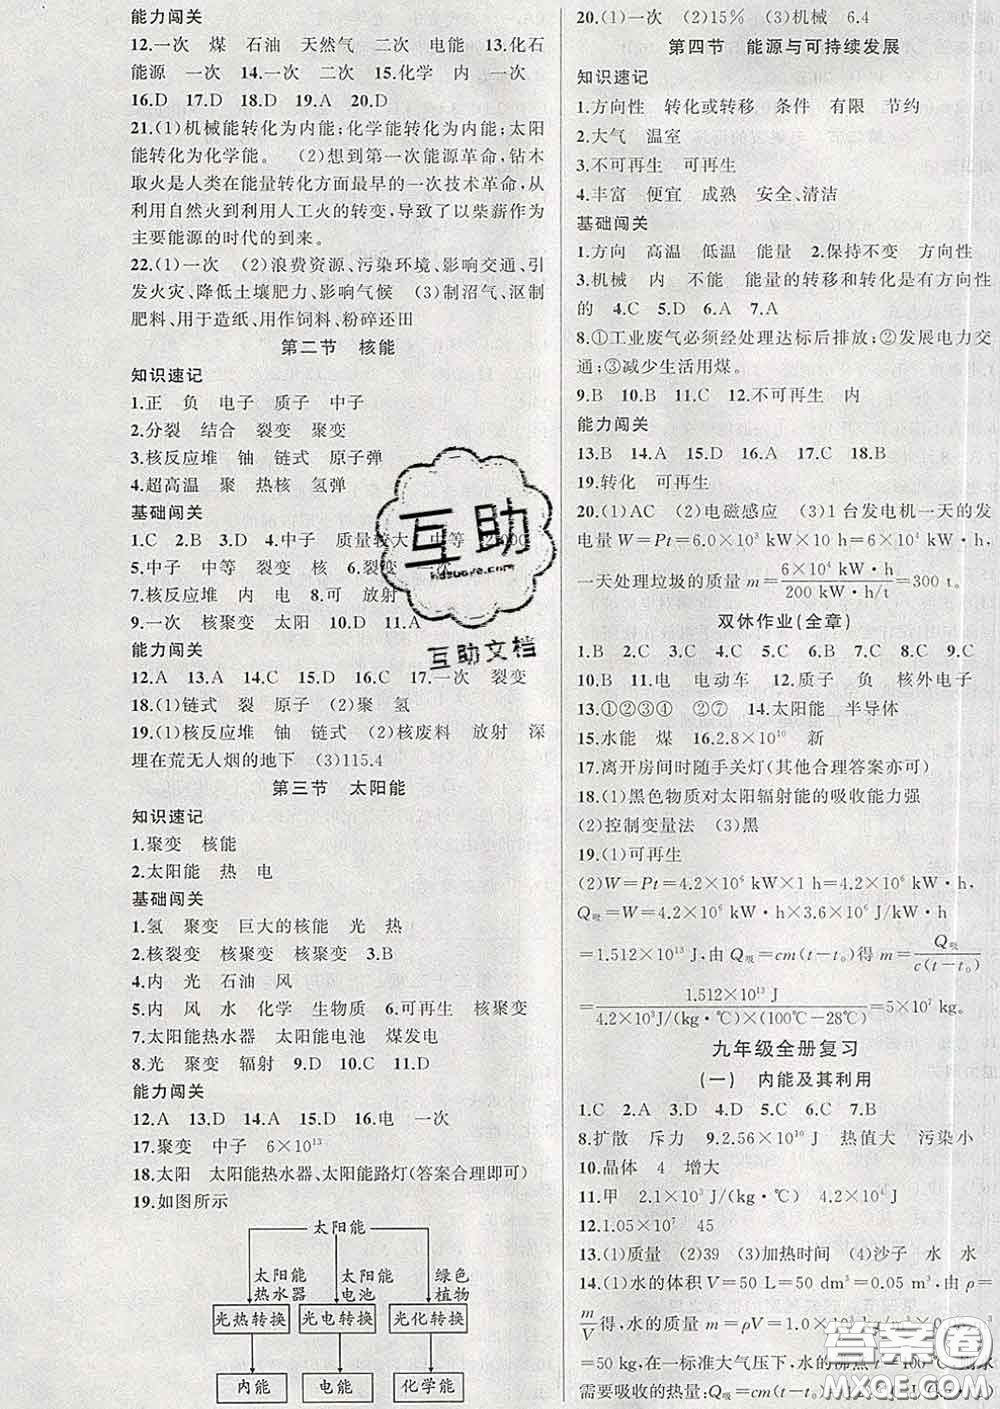 能力闯关
12.一次 煤 石油 天然气 二次 电能 13.化石
能源 一次 14.一次 二次 15.化学 内 一次
16.D 17.D 18.D 19.A 20.D
21.(1)机械能转化为内能;化学能转化为内能;太阳
能转化为化学能。 (2)想到第一次能源革命,钻木
取火是人类在能量转化方面最早的一次技术革命,从
利用自然火到利用人工火的转变,导致了以柴薪作为
主要能源的时代的到来。
22.(1)一次 (2)浪费资源、污染环境、影响交通、引
发火灾、降低土壤肥力、影响气候 (3)制沼气、沤制
肥料、用于造纸、用作饲料、粉碎还田
第二节 核能
知识速记
1.正 负 电子 质子 中子
2.分裂 结合 裂变 聚变
3.核反应堆 铀 链式 原子弹
4.超高温 聚 热核 氢弹
基础闯关
1.C 2.B 3.D 4.中子 质量较大 中等
5.中子 中等 裂变 核 6.裂变 一次
7.核反应堆 内 电 8.可 放射
9.一次 核聚变 太阳 10.D 11.A
能力闯关
12.A 13.A 14.C 15.C 16.C 17.一次 裂变
18.(1)链式 裂 原子 (2)聚 氢
19.(1)核反应堆 铀 链式 (2)核废料 放射 深
埋在荒无人烟的地下 (3)115.4
第三节 太阳能
知识速记
1.聚变 核能
2.太阳能 热 电
基础闯关
1.氢 聚变 巨大的核能 光 热
2.核裂变 核聚变 核聚变 3.B
4.内 光 石油 风
5.内 风 水 化学 生物质 6.可再生 核聚变
7.太阳能热水器 太阳能电池 煤发电
8.光 聚变 辐射 9.D 10.D 11.C
能力闯关
12.A 13.D 14.A 15.D 16.电 一次
17.聚变 中子 6×10¹³
18.太阳 太阳能热水器、太阳能路灯(答案合理即可)
19.如图所示
太阳能
太阳能热水器 太阳能电池 绿色植物
光热转换 光电转换 光化转换
内能 电能 化学能
20.(1)一次 (2)15% (3)机械 6.4
第四节 能源与可持续发展
知识速记
1.方向性 转化或转移 条件 有限 节约
2.大气 温室
3.不可再生 可再生
4.丰富 便宜 成熟 安全、清洁
基础闯关
1.方向 高温 低温 能量 2.保持不变 方向性
3.机械 内 不能 能量的转移和转化是有方向性
的 4.C 5.D 6.A 7.A
8.①工业废气必须经处理达标后排放;②发展电力交
通;③减少生活用煤。
9.B 10.B 11.C 12.不可再生 内
能力闯关
13.B 14.A 15.D 16.A 17.C 18.B
19.转化 可再生
20.(1)AC (2)电磁感应 (3)1台发电机一天的发
电量W=Pt=6.0×10³ kW×10 h=6×10⁴ kW·h,
一天处理垃圾的质量m=6×10⁴ kW·h/200 kW·h/t=300 t。
双休作业(全章)
1.B 2.C 3.C 4.B 5.D 6.C 7.B 8.C 9.C
10.B 11.电 电动车 12.质子 负 核外电子
13.①②③④ ②⑦ 14.太阳能 半导体
15.水能 煤 16.2.8×10¹⁰ 新
17.离开房间时随手关灯(其他合理答案亦可)
18.(1)黑色物质对太阳辐射能的吸收能力强
(2)控制变量法 (3)黑
19.(1)可再生
(2)W=Pt=4.2×10⁶ kW×1 h=4.2×10⁶ kW·h,
Q吸=W=4.2×10⁶ kW·h×3.6×10⁶ J/kW·h
=1.512×10¹³ J,由Q吸=cm(t-t₀)得m=Q吸/c(t-t₀)
=1.512×10¹³ J/4.2×10³J/(kg·℃)×(100℃-28℃)=5×10⁷ kg。
九年级全册复习
(一) 内能及其利用
1.C 2.A 3.B 4.D 5.C 6.C 7.B
8.扩散 斥力 9.2.56×10¹⁰ J 热值大 污染小
10.晶体 4 增大
11.甲 2.1×10³ J/(kg·℃) 4.2×10⁴ J
12.1.05×10⁷ 45
13.(1)质量 (2)39 (3)加热时间 (4)沙子 水 水
14.(1)水的体积V=50 L=50 dm³=0.05 m³,由ρ=
m/V得,水的质量m=ρV=1.0×10³
=50 kg,在一标准大气压下,水的沸点t=100℃
需要吸收的热量:Q吸=cm(t-t₀)
互助
hdzuoye.com
互助文档
答案圈
MXQE.COM